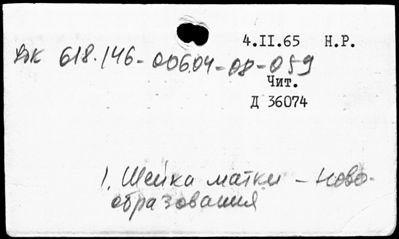 4.II.65 Н.Р.
ДК 618.146-006.04-08-059
Чит.
Д 36074
1. Шейка матки - Ново-
образования